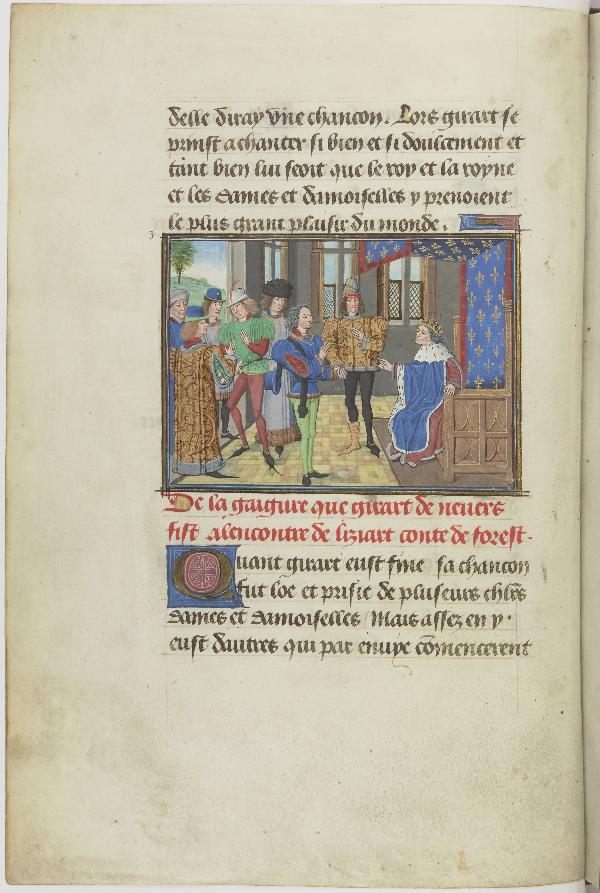 delle diray vne chancon. Lors girart se
prinst a chanter si bien et si doulcement et
tant bien lui seoit que le roy et la royne
et les dames et damoiselles y prenoient
le plus grant plaisir du monde.
3
De la gaigure que girart de neuers
fist alencontre de liziart conte de forest.
Quant girart eust fine sa chancon
fut loe et prisie de pluseurs chlrs
dames et damoiselles / Mais assez en y
eust dautres qui par enuye comencerent